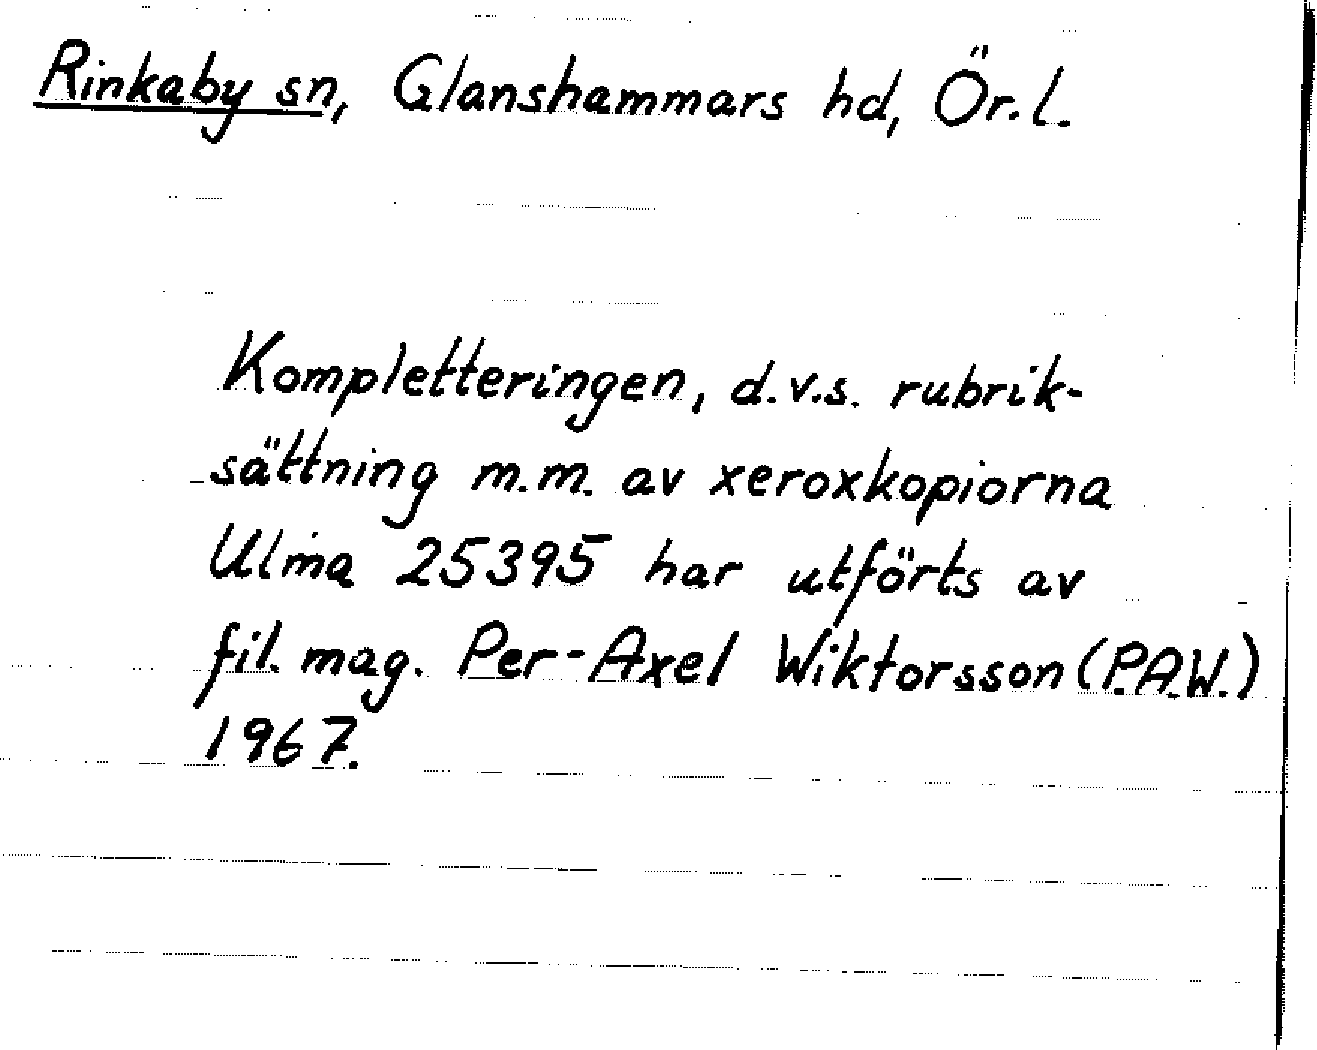 Rinkaby sn, Glanshammars hd, Ör.l.
Kompletteringen, d.v.s. rubrik-
sättning m.m. av xeroxkopiorna
Ulma 25395 har utförts av
fil. mag. Per-Axel Wiktorsson (P.A.W.)
1967.